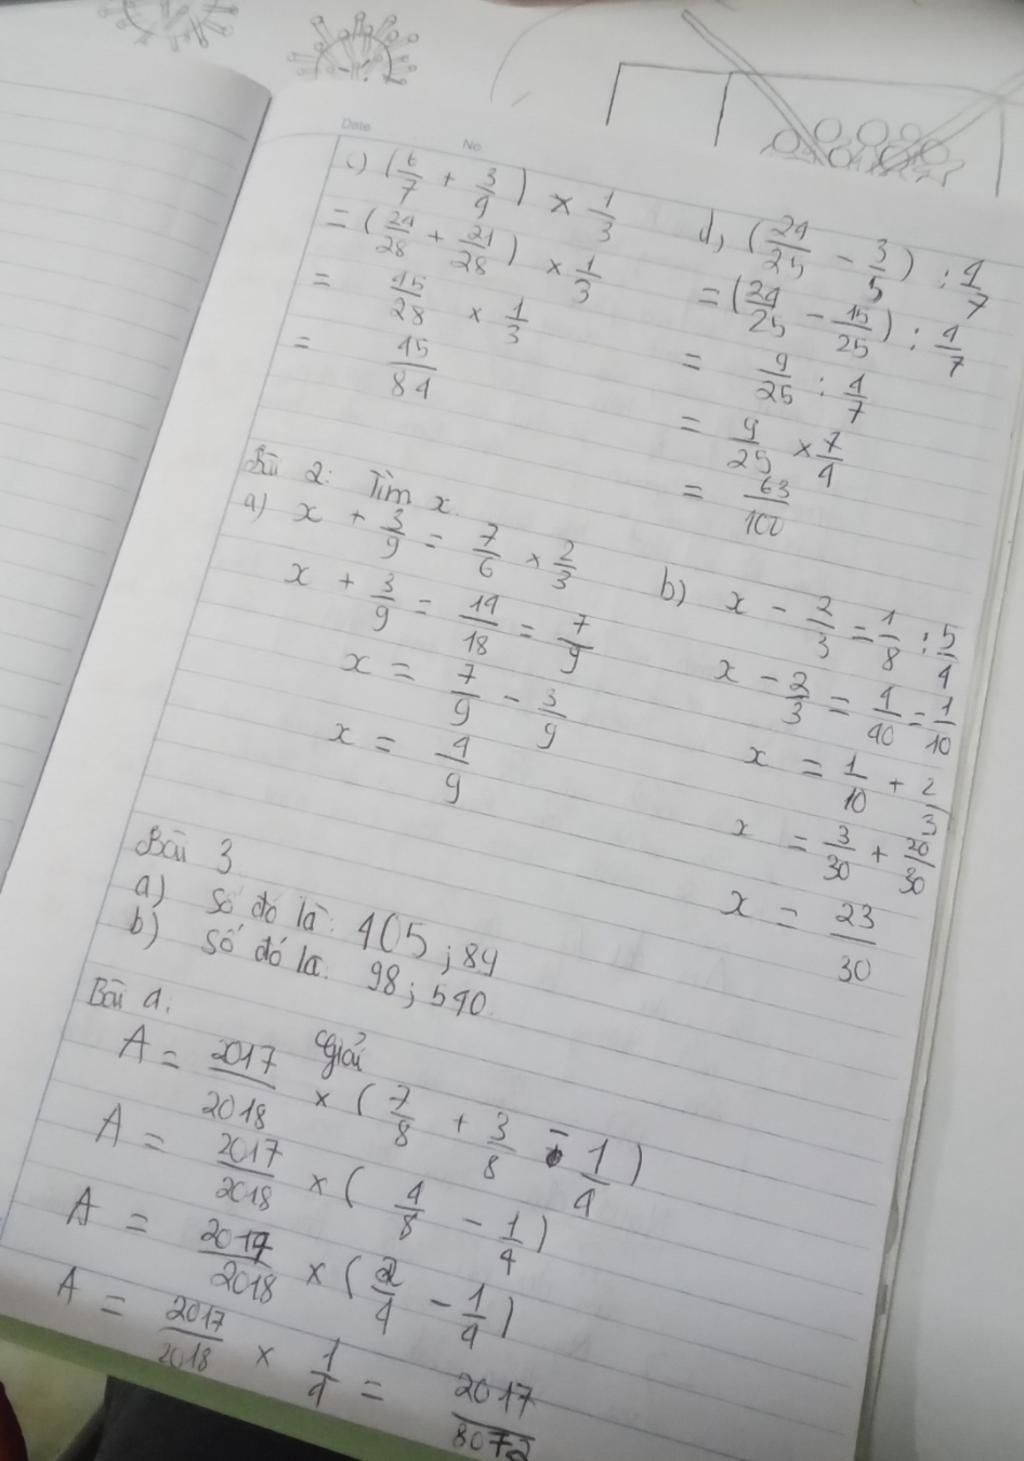 Date
No
c) (6/7 + 3/4) × 1/3
= (24/28 + 21/28) × 1/3
= 45/28 × 1/3
= 45/84
d, (24/25 - 3/5) : 4/7
= (24/25 - 15/25) : 4/7
= 9/25 : 4/7
= 9/25 × 7/4
= 63/100
Bài 2: Tìm x.
a) x + 3/9 = 7/6 × 2/3
x + 3/9 = 14/18 = 7/9
x = 7/9 - 3/9
x = 4/9
b) x - 2/3 = 1/8 : 5/4
x - 2/3 = 4/40 = 1/10
x = 1/10 + 2/3
x = 3/30 + 20/30
x = 23/30
Bài 3
a) số đó là: 405; 84
b) số đó là: 98; 540.
Bài 4:
Giải
A = 2017/2018 × (7/8 + 3/8 - 1/4)
A = 2017/2018 × (4/8 - 1/4)
A = 2017/2018 × (2/4 - 1/4)
A = 2017/2018 × 1/4 = 2017/8072